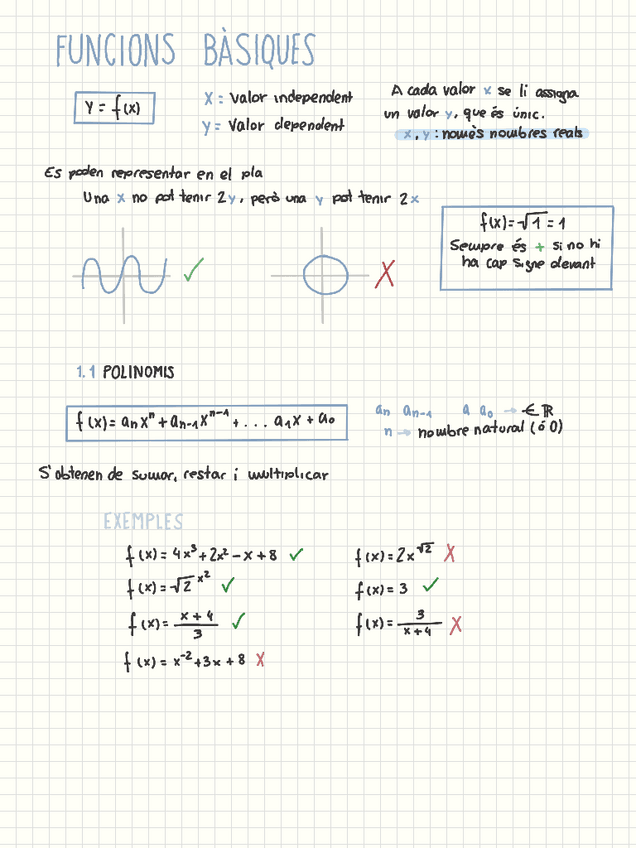 FUNCIONS BÀSIQUES
y = f(x)
x = Valor independent
y = Valor dependent
A cada valor x se li assigna
un valor y, que és únic.
x, y : només nombres reals
Es poden representar en el pla
Una x no pot tenir 2y, però una y pot tenir 2x
f(x)=√1 = 1
Sempre és + si no hi
ha cap signe devant
✓
X
1.1 POLINOMIS
f(x)= aₙxⁿ + aₙ₋₁xⁿ⁻¹ + ... a₁x + a₀
aₙ aₙ₋₁ a a₀ → ∈ ℝ
n → nombre natural (ó 0)
S'obtenen de sumar, restar i multiplicar
EXEMPLES
f(x) = 4x³ + 2x² − x + 8 ✓
f(x) = √2 x² ✓
f(x) = (x + 4)/3 ✓
f(x) = x⁻² + 3x + 8 X
f(x) = 2x^√2 X
f(x) = 3 ✓
f(x) = 3/(x+4) X